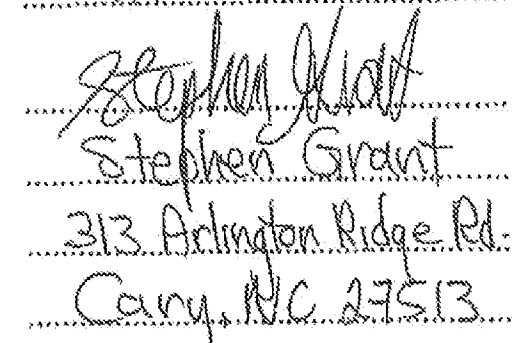 Stephen Grant
Stephen Grant
313 Arlington Ridge Rd.
Cary, NC 27513